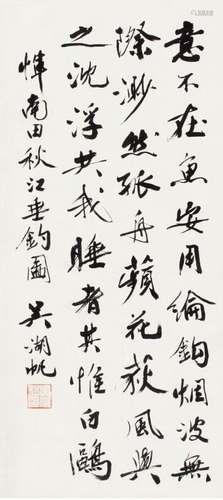 意不在魚安用綸鈎烟波無
際渺然孤舟蘋花荻風與
之沈浮共我睡者其惟白鷗
惲南田秋江垂釣圖
吴湖帆